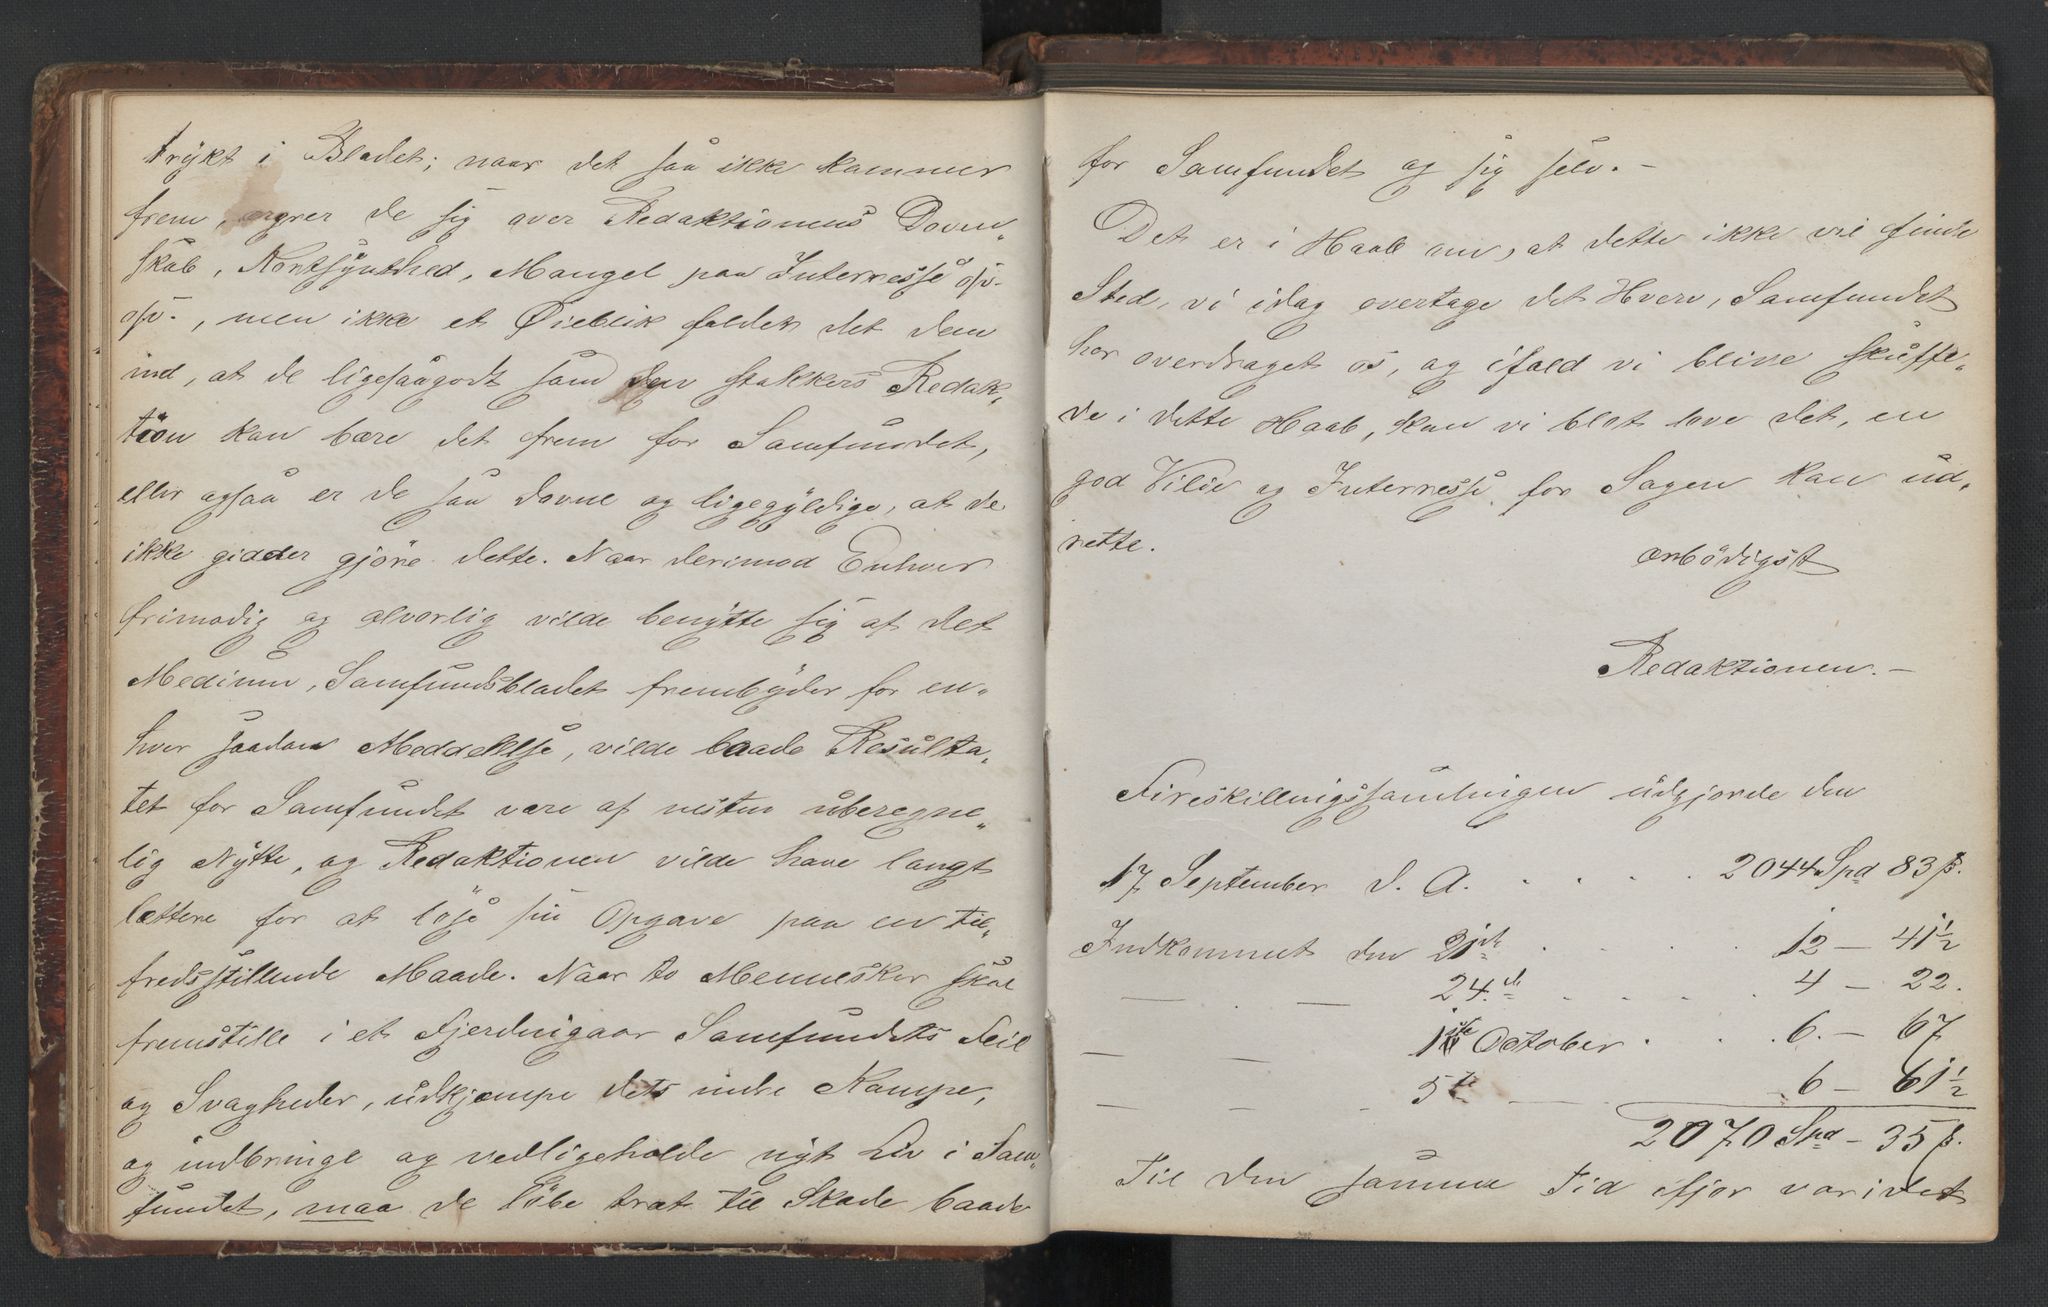 trykt i Bladet; naar det saa ikke kommer
frem, ærgrer de sig over Redaktionens Doven„
skab, Kortsynthed, Mangel paa Internesse osv.
osv., men ikke et Øieblik falder det dem
ind, at de ligesaagodt som den stakkers Redak„
tion kan bære det frem for Samfundet,
eller ogsaa er de saa dovne og ligegyldige, at de
ikke gidder gjöre dette. Naar derimod Enhver
frimodig og alvorlig vilde benytte sig af det
Medium, Samfundsbladet frembyder for en„
hver saadan Meddelelse, vilde baade Resulta„
tet for Samfundet være af nesten uberegne„
lig Nytte, og Redaktionen vilde have langt
lættere for at löse sin Opgave paa en til„
fredsstillende Maade. Naar to Mennesker skal
fremstille i et Fjerdingaar Samfundets Feil
og Svagheder, udkjæmpe dets indre Kampe,
og indbringe og vedligeholde nyt Liv i Sam„
fundet, maa de löbe træt til Skade baade
for Samfundet og sig selv. –
Det er i Haab om, at dette ikke vil finde
Sted, vi idag overtage det Hverv, Samfundet
har overdraget os, og ifald vi blive skuffe„
de i dette Haab, kan vi blot love det, en
god Vilie og Internesse for Sagen kan ud„
rette.
ærbödigst
Redaktionen. –
Fireskillingssamlingen udgjorde den
17 September d. A. . . . . 2044 Spd 83 ß.
Indkommet den 21de . . . . 12 – 41½
— . — 24de . . . . 4 – 22.
— — 1ste October . . . 6. – 67
— — . 5te — 6 – 61½
2070 Spd – 35 ß.
Til den samme Tid ifjor var idet